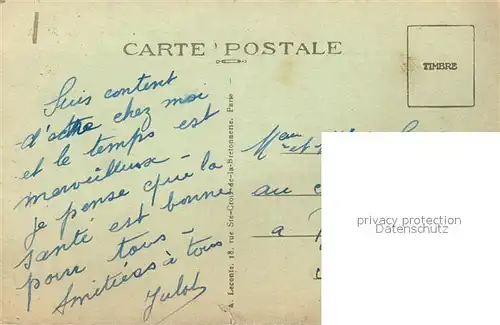 CARTE POSTALE
TIMBRE
Suis content
d'être chez moi
et le temps est
merveilleux -
je pense que la
santé est bonne
pour tous -
Amitiées à tous
Julot
A. Leconte, 18, rue Ste-Croix-de-la-Bretonnerie, Paris
au
a
privacy protection
Datenschutz